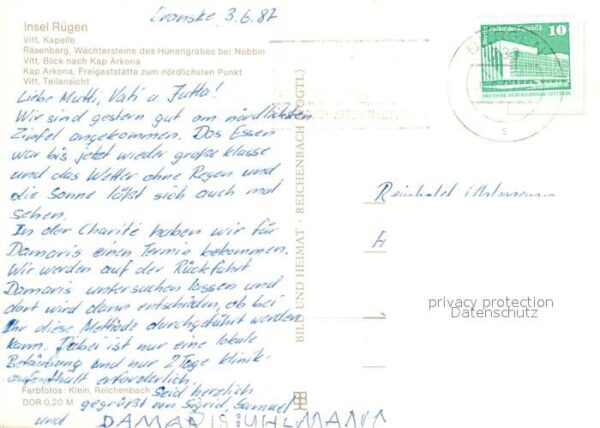 Dranske, 3.6.87
Insel Rügen
Vitt, Kapelle
Räsenbarg, Wächtersteine des Hünengrabes bei Nobbin
Vitt. Blick nach Kap Arkona
Kap Arkona, Freigaststätte zum nördlichsten Punkt
Vitt, Teilansicht
Liebe Mutti, Vati u. Jutta!
Wir sind gestern gut am nördlichsten
Zipfel angekommen. Das Essen
war bis jetzt wieder große Klasse
und das Wetter ohne Regen und
die Sonne läßt sich auch mal
sehen.
In der Charité haben wir für
Damaris einen Termin bekommen.
Wir werden auf der Rückfahrt
Damaris untersuchen lassen und
dort wird dann entschieden, ob bei
Ihr diese Methode durchgeführt werden
kann. Dabei ist nur eine lokale
Betäubung und nur 2 Tage Klinik-
aufenthalt erforderlich.
Seid herzlich
gegrüßt von Sigrid, Samuel
und DAMARIS UHLMANN
Farbfotos: Klein, Reichenbach
DDR 0,20 M
BILD UND HEIMAT · REICHENBACH (VOGTL)
10
DEUTSCHE DEMOKRATISCHE REPUBLIK
Reinhold
privacy protection
Datenschutz